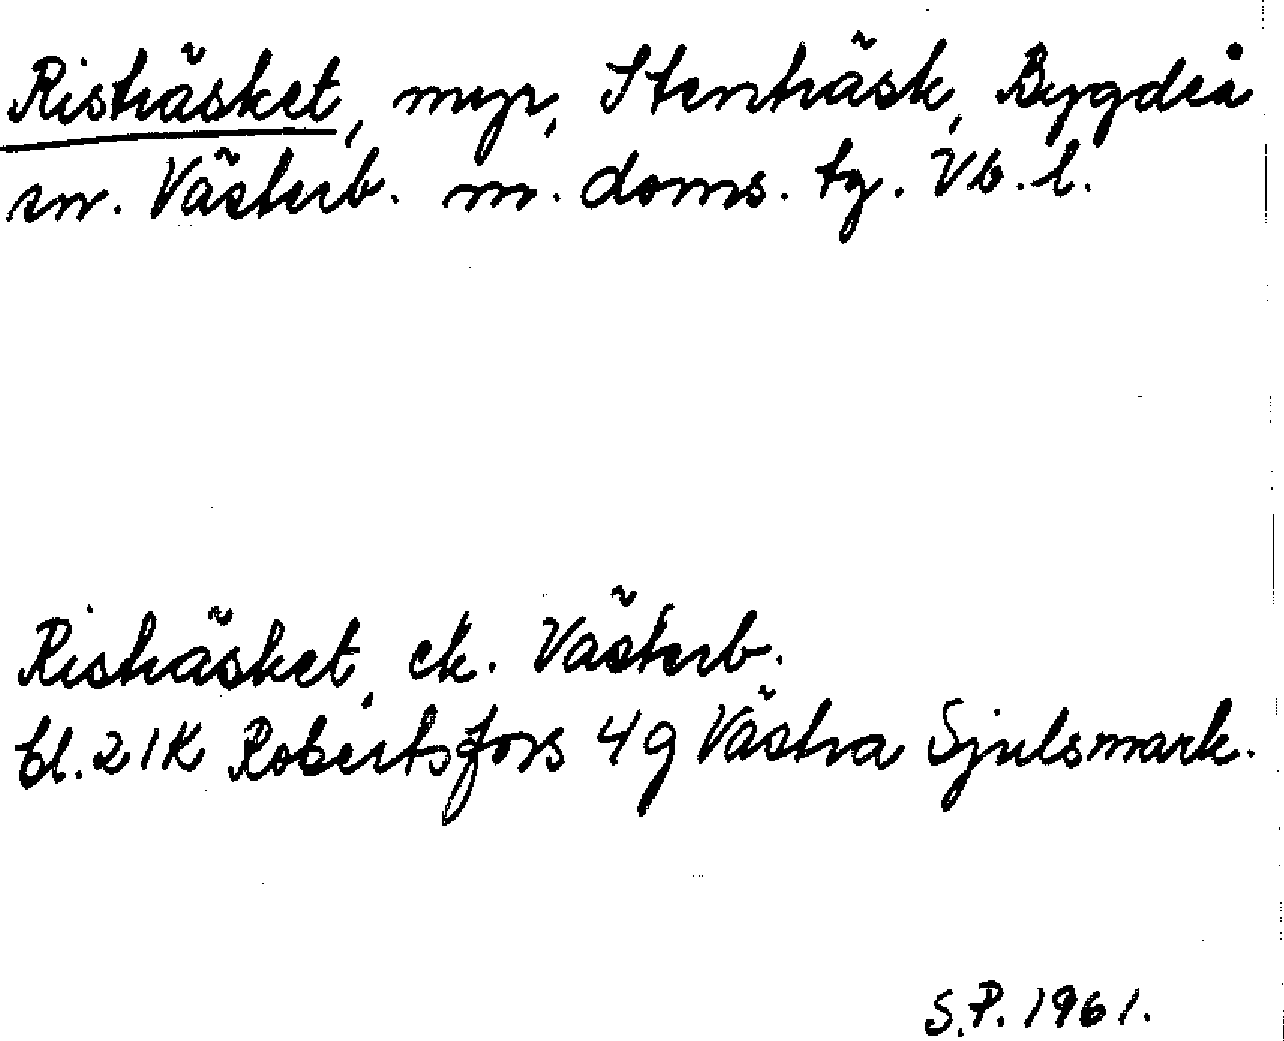 Risträsket, myr, Stenträsk, Bygdeå
sn. Västerb. m. doms. tg. Vb. l.
Risträsket, ek. Västerb.
bl. 21K Robertsfors 4g Västra Sjulsmark.
S.P. 1961.